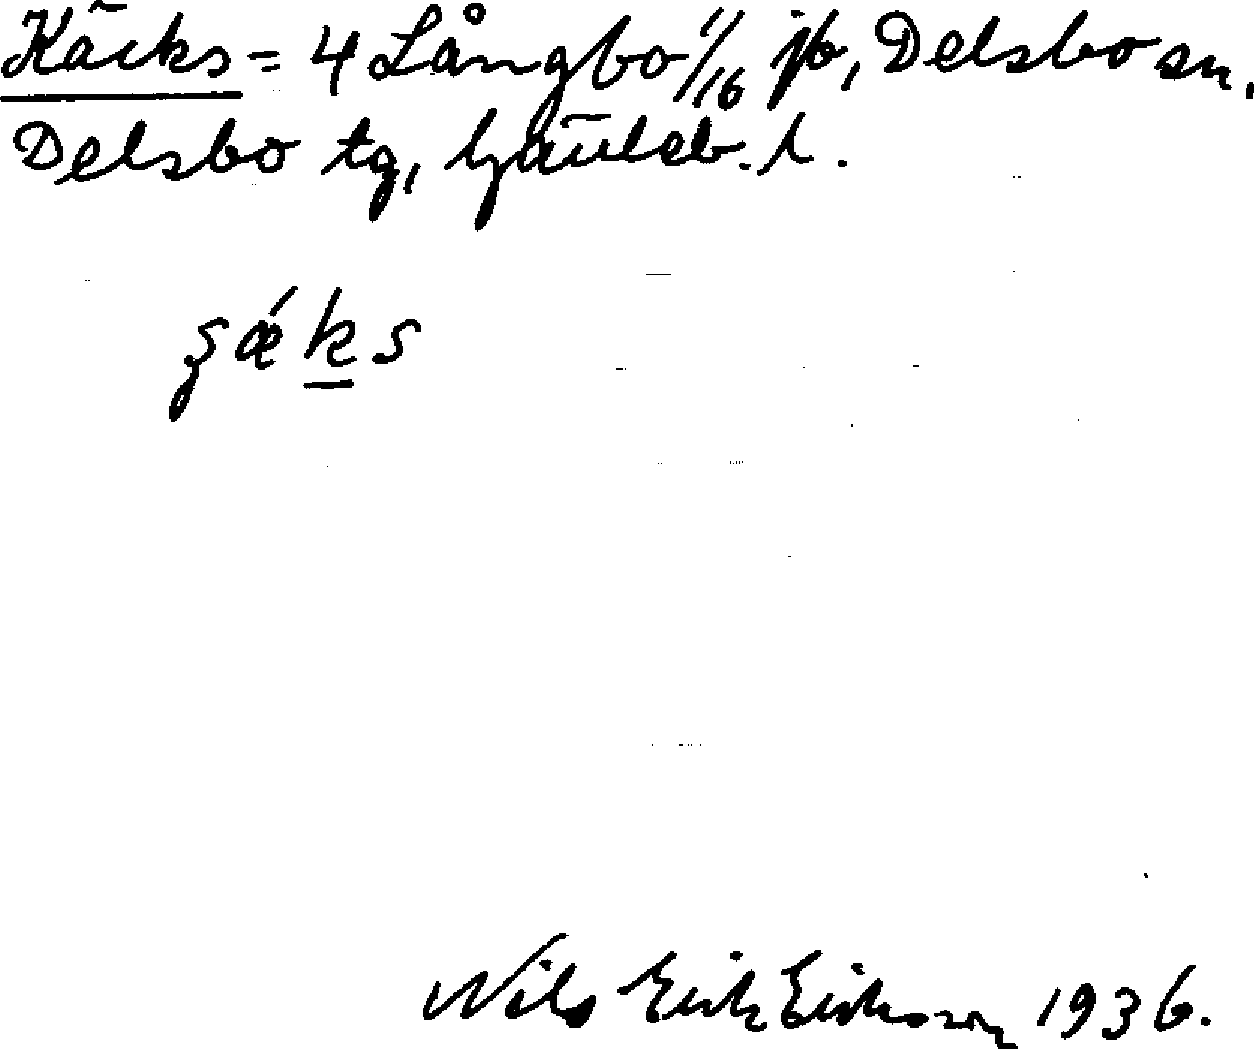 Käcks = 4 Långbo 1/16 jb, Delsbo sn.
Delsbo tg, Gävleb. l.
ʂǽks
Nils Erik Eriksson 1936.